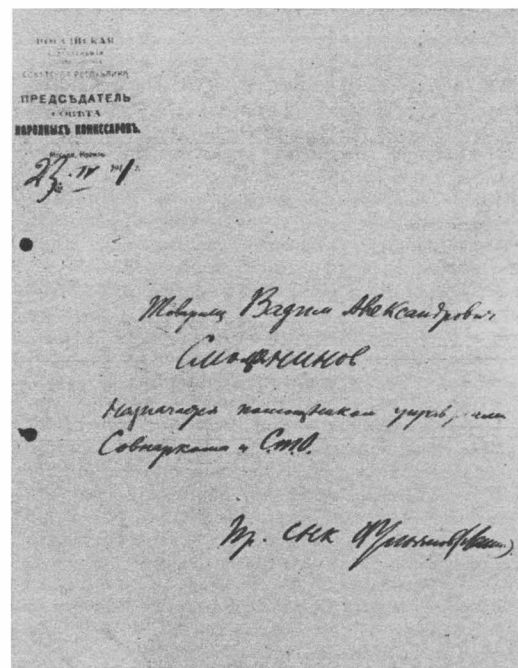 РОССІЙСКАЯ
СОВѢТСКАЯ РЕСПУБЛИКА
ПРЕДСѢДАТЕЛЬ
СОВѢТА
НАРОДНЫХЪ КОМИССАРОВЪ.
Москва, Кремль
23. IV 1921 г.
Товарищ Вадим Александрович
Смольянинов
назначается помощником
Совнаркома и С.Т.О.
Пр. СНК В Ульянов (Ленин)